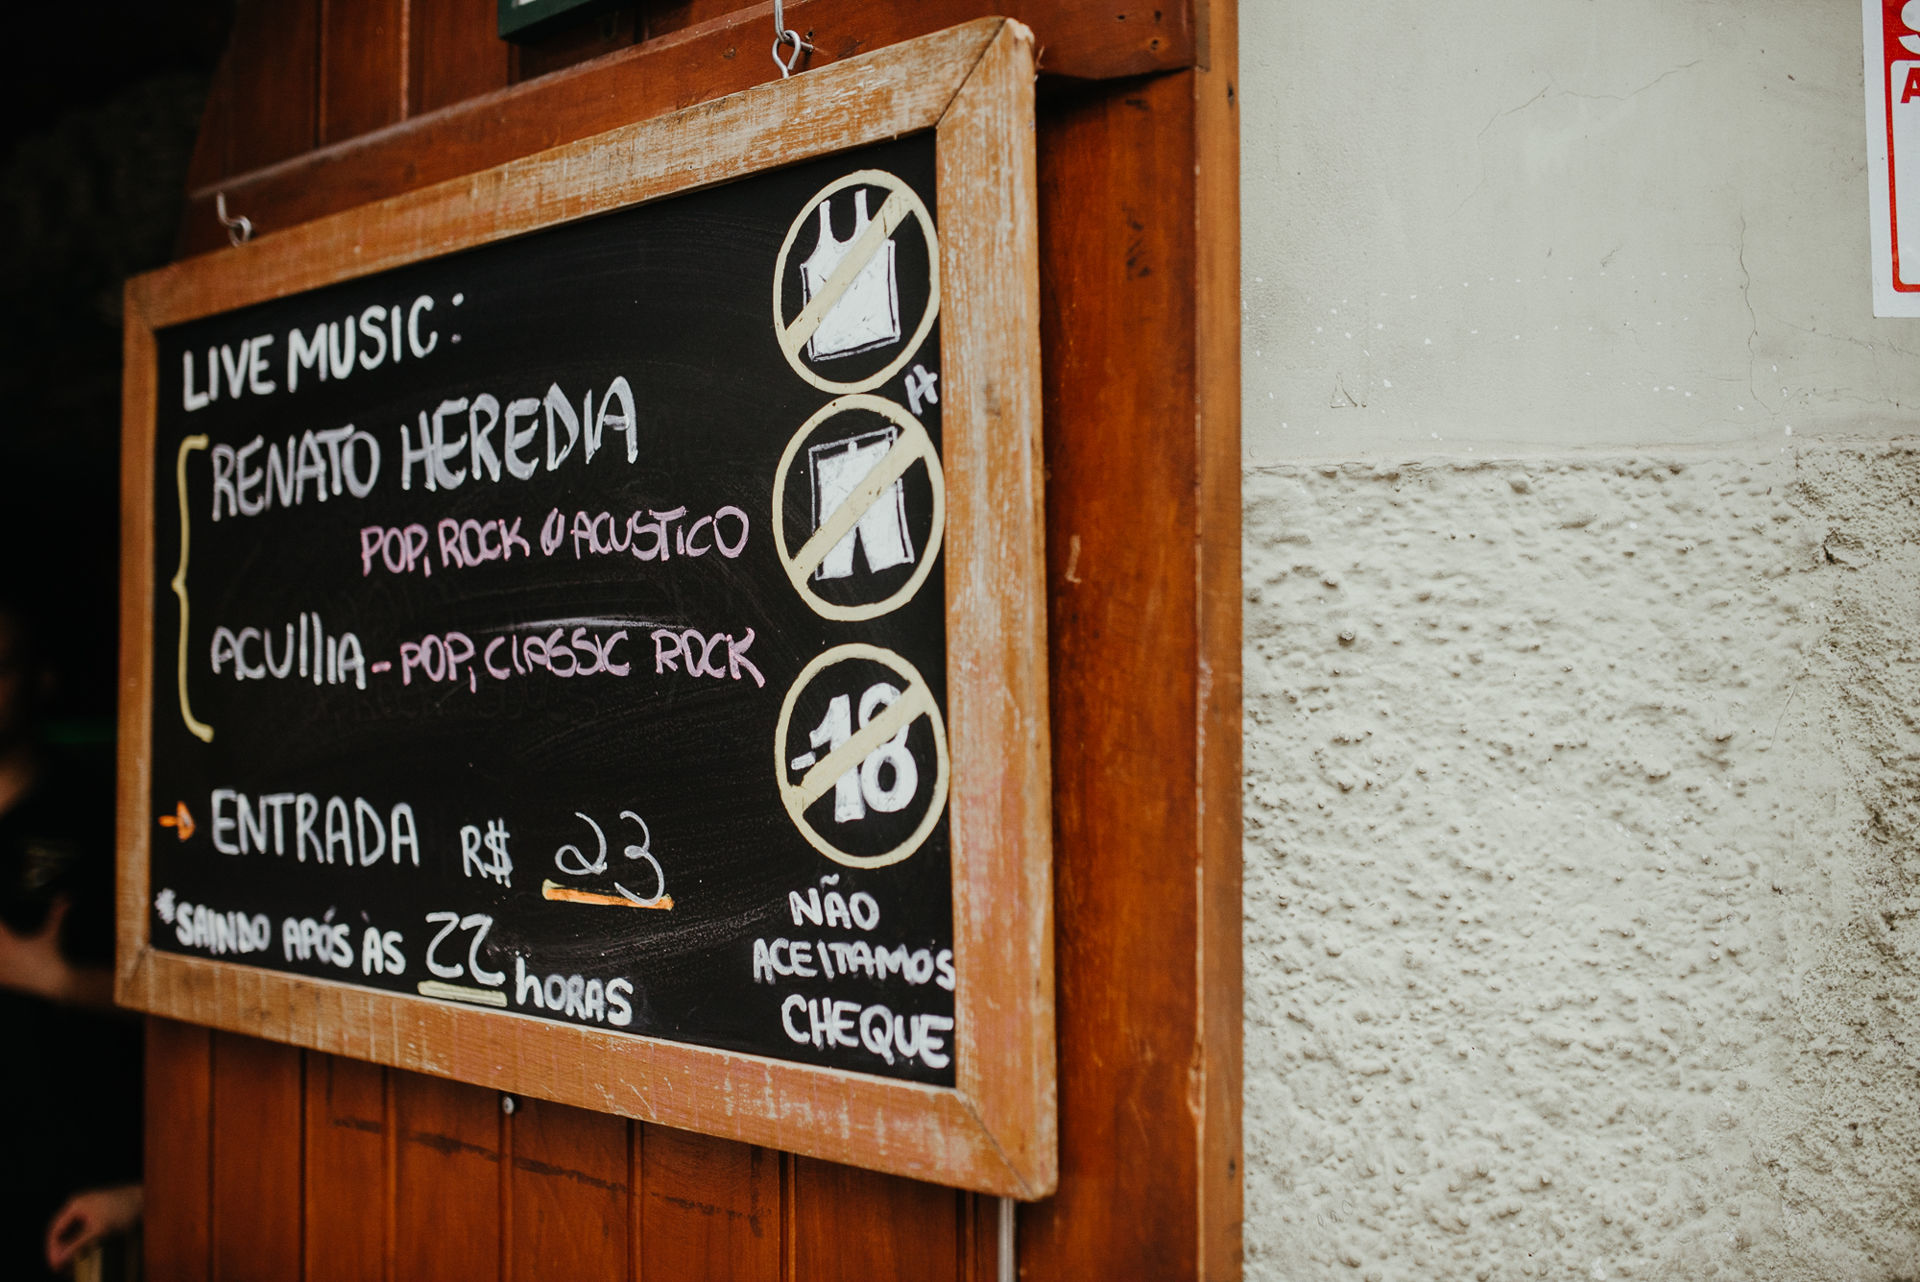 LIVE MUSIC:
RENATO HEREDIA
POP, ROCK ACUSTICO
ACUllIA - POP, CLASSIC ROCK
→ ENTRADA R$ 23
*SAINDO APÓS ÀS 22 hORAS
H
-18
NÃO
ACEITAMOS
CHEQUE